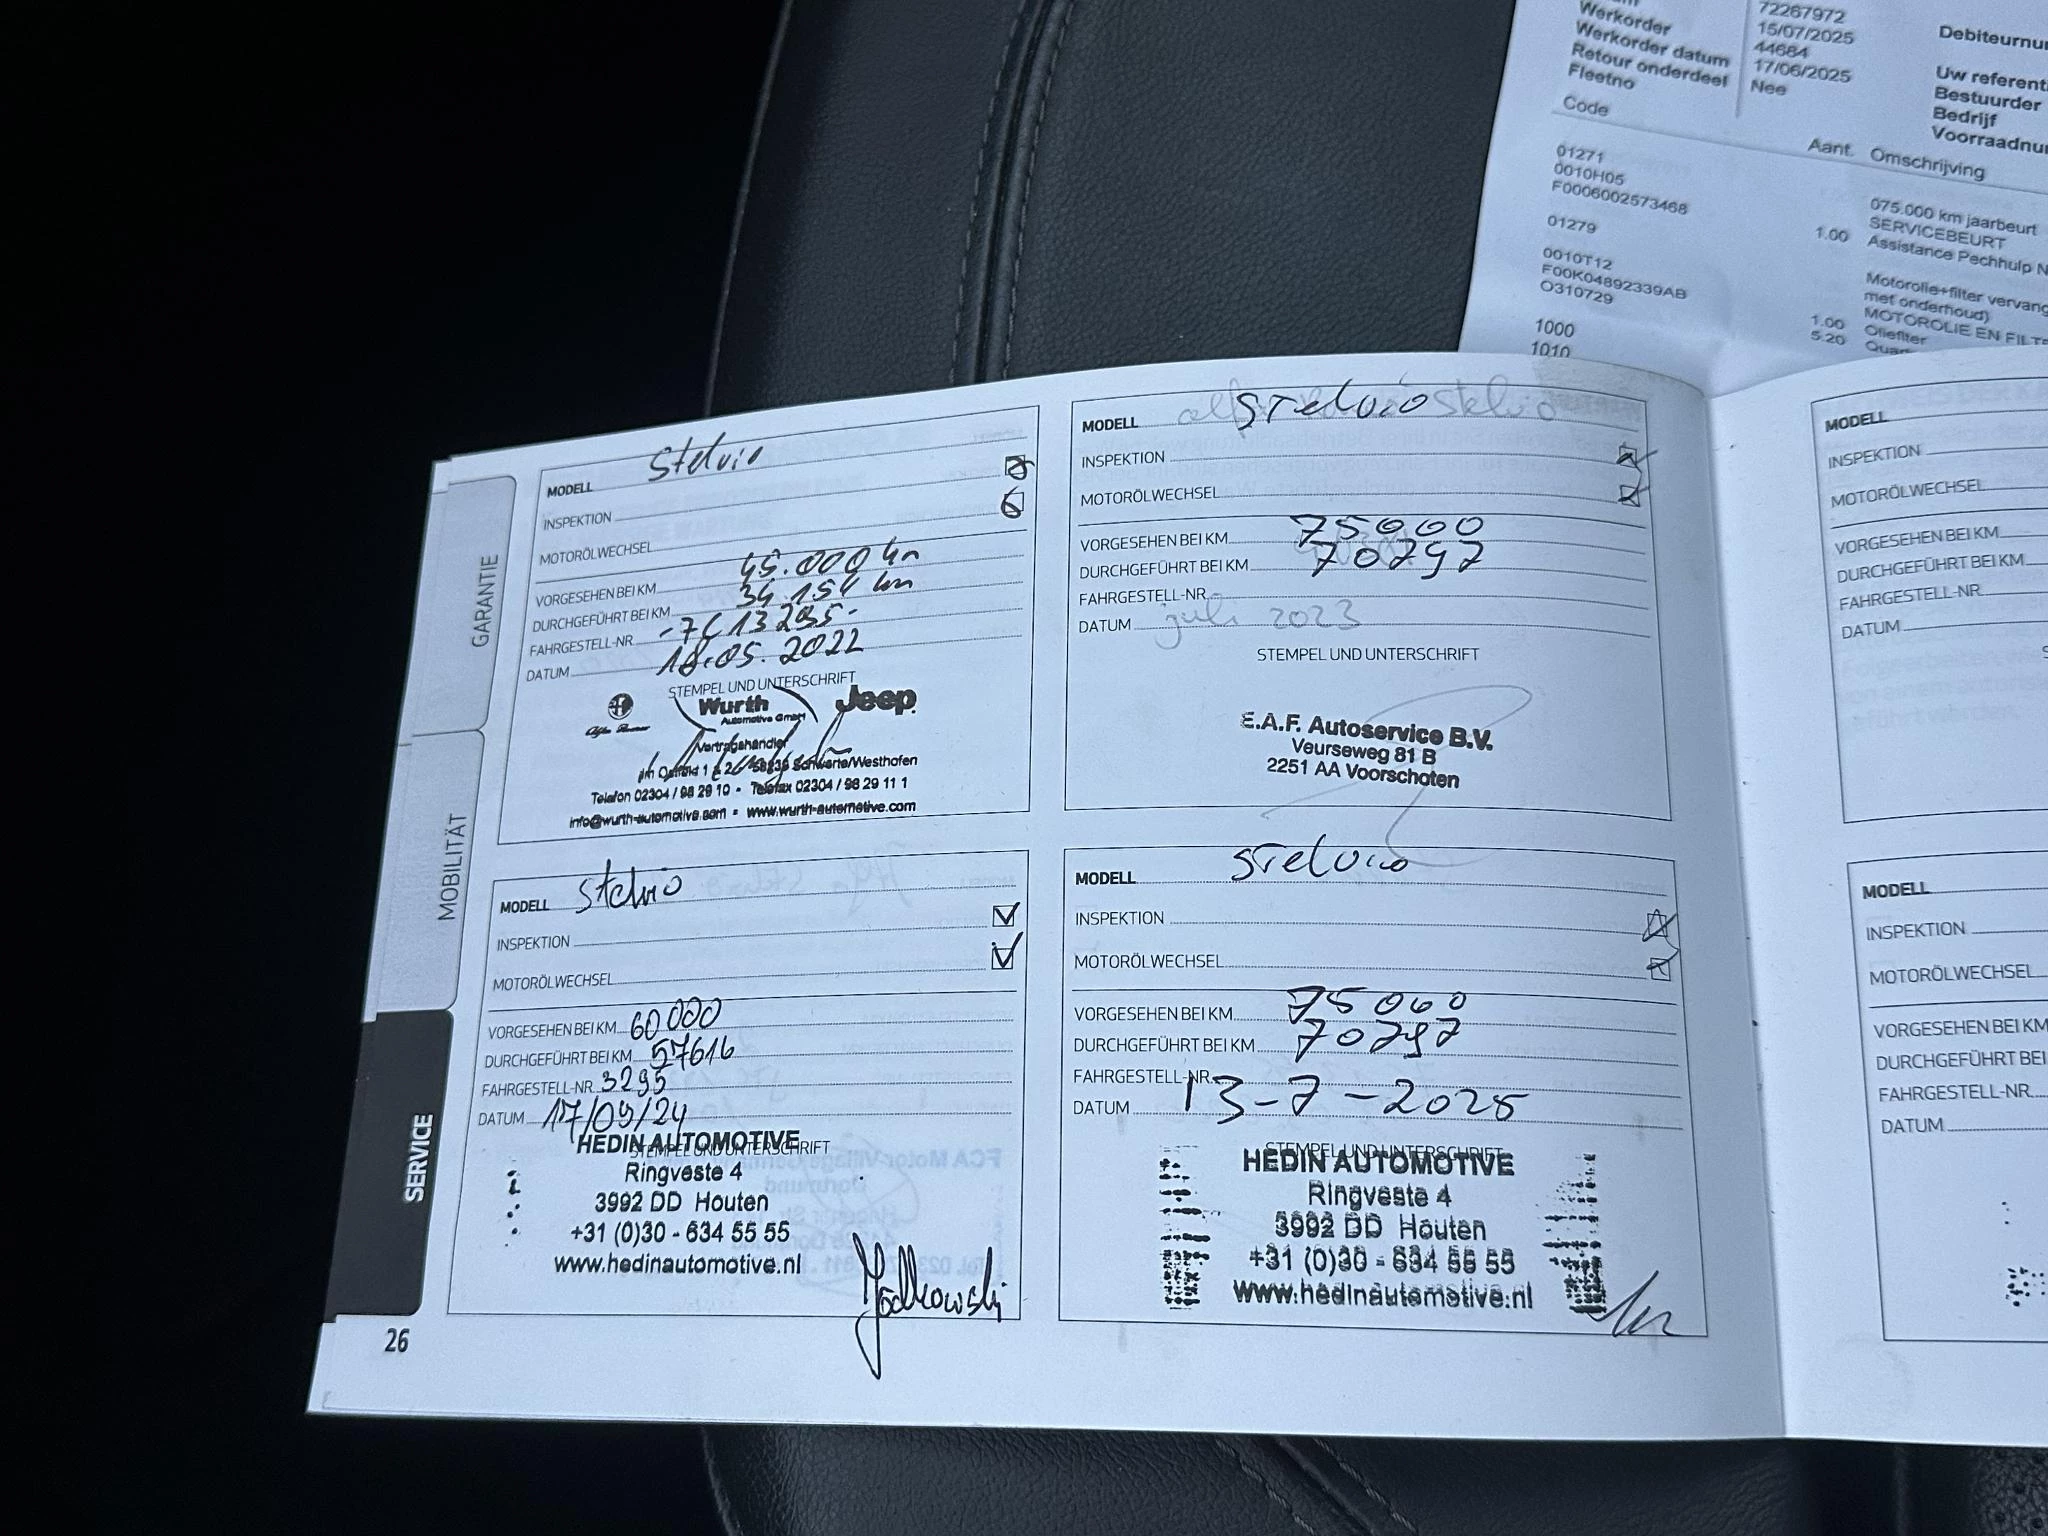 72267972
Werkorder 15/07/2025
Werkorder datum 44684
Retour onderdeel 17/06/2025
Fleetno Nee
Debiteurnu
Uw referent
Bestuurder
Bedrijf
Voorraadnu
Code Aant. Omschrijving
01271 075.000 km jaarbeurt
0010H05 SERVICEBEURT
F0006002573468 1.00 Assistance Pechhulp N
01279 Motorolie+filter vervang
met onderhoud)
0010T12 MOTOROLIE EN FILT
F00K04892339AB 1.00 Oliefilter
O310729 5.20 Qua
1000
1010
GARANTIE
MOBILITÄT
SERVICE
MODELL Stelvio
INSPEKTION
MOTORÖLWECHSEL
VORGESEHEN BEI KM 45.000 km
DURCHGEFÜHRT BEI KM 34.154 km
FAHRGESTELL-NR. -7C13295-
DATUM 18.05.2022
STEMPEL UND UNTERSCHRIFT
Alfa Romeo Wurth Jeep
Automotive GmbH
Vertragshändler
58239 Schwerte/Westhofen
Telefon 02304 / 98 29 10 • Telefax 02304 / 98 29 11 1
info@wurth-automotive.com • www.wurth-automotive.com
MODELL Stelvio Stelvio
INSPEKTION
MOTORÖLWECHSEL
VORGESEHEN BEI KM 75000
DURCHGEFÜHRT BEI KM 70797
FAHRGESTELL-NR.
DATUM juli 2023
STEMPEL UND UNTERSCHRIFT
E.A.F. Autoservice B.V.
Veurseweg 81 B
2251 AA Voorschoten
MODELL Stelvio
INSPEKTION
MOTORÖLWECHSEL
VORGESEHEN BEI KM 60000
DURCHGEFÜHRT BEI KM 57616
FAHRGESTELL-NR. 3295
DATUM 17/09/24
STEMPEL UND UNTERSCHRIFT
HEDIN AUTOMOTIVE
Ringveste 4
3992 DD Houten
+31 (0)30 - 634 55 55
www.hedinautomotive.nl
MODELL Stelvio
INSPEKTION
MOTORÖLWECHSEL
VORGESEHEN BEI KM 75000
DURCHGEFÜHRT BEI KM 70797
FAHRGESTELL-NR.
DATUM 13-7-2025
STEMPEL UND UNTERSCHRIFT
HEDIN AUTOMOTIVE
Ringveste 4
3992 DD Houten
+31 (0)30 - 634 55 55
www.hedinautomotive.nl
MODELL
INSPEKTION
MOTORÖLWECHSEL
VORGESEHEN BEI KM
DURCHGEFÜHRT BEI KM
FAHRGESTELL-NR.
DATUM
MODELL
INSPEKTION
MOTORÖLWECHSEL
VORGESEHEN BEI KM
DURCHGEFÜHRT BEI
FAHRGESTELL-NR.
DATUM
26